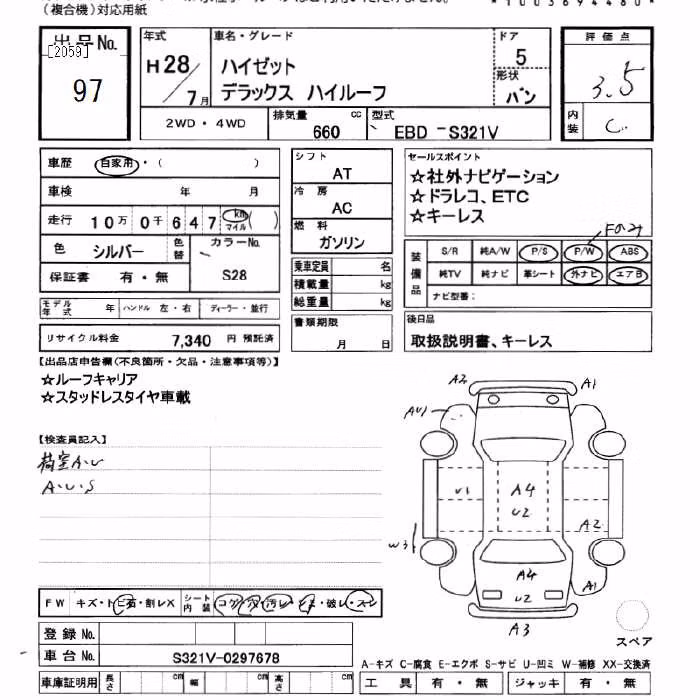 (複合機)対応用紙
*1003694480*
出品No.
[2059]
97
年式
H28/7月
車名・グレード
ハイゼット
デラックス ハイルーフ
ドア
5
形状
バン
評価点
3.5
内装
C
2WD・4WD
排気量
660
cc
型式
EBD-S321V
車歴 自家用・( )
車検 年 月
走行 10万0千647 km マイル ( )
色 シルバー
色替
カラーNo.
S28
保証書 有・無
モデル年式 年 ハンドル 左・右 ディーラー・並行
リサイクル料金 7,340 円 預託済
シフト
AT
冷房
AC
燃料
ガソリン
乗車定員 名
積載量 kg
総重量 kg
書類期限
月 日
セールスポイント
☆社外ナビゲーション
☆ドラレコ、ETC
☆キーレス
Fのみ
装備品
S/R 純A/W P/S P/W ABS
純TV 純ナビ 革シート 外ナビ エアB
ナビ型番:
後日品
取扱説明書、キーレス
【出品店申告欄(不良箇所・欠品・注意事項等)】
☆ルーフキャリア
☆スタッドレスタイヤ車載
【検査員記入】
荷室A・U
A・U・S
A2
A1
AU1
U1
A4
U2
A2
W3
A4
U2
A1
A3
スペア
FW キズ・ト・石・割レX
シート内装
コゲ・穴・汚レ・シミ・破レ・スレ
登録No.
車台No. S321V-0297678
車庫証明用 長さ cm 幅 cm 高さ cm
A-キズ C-腐食 E-エクボ S-サビ U-凹ミ W-補修 XX-交換済
工具 有・無 ジャッキ 有・無